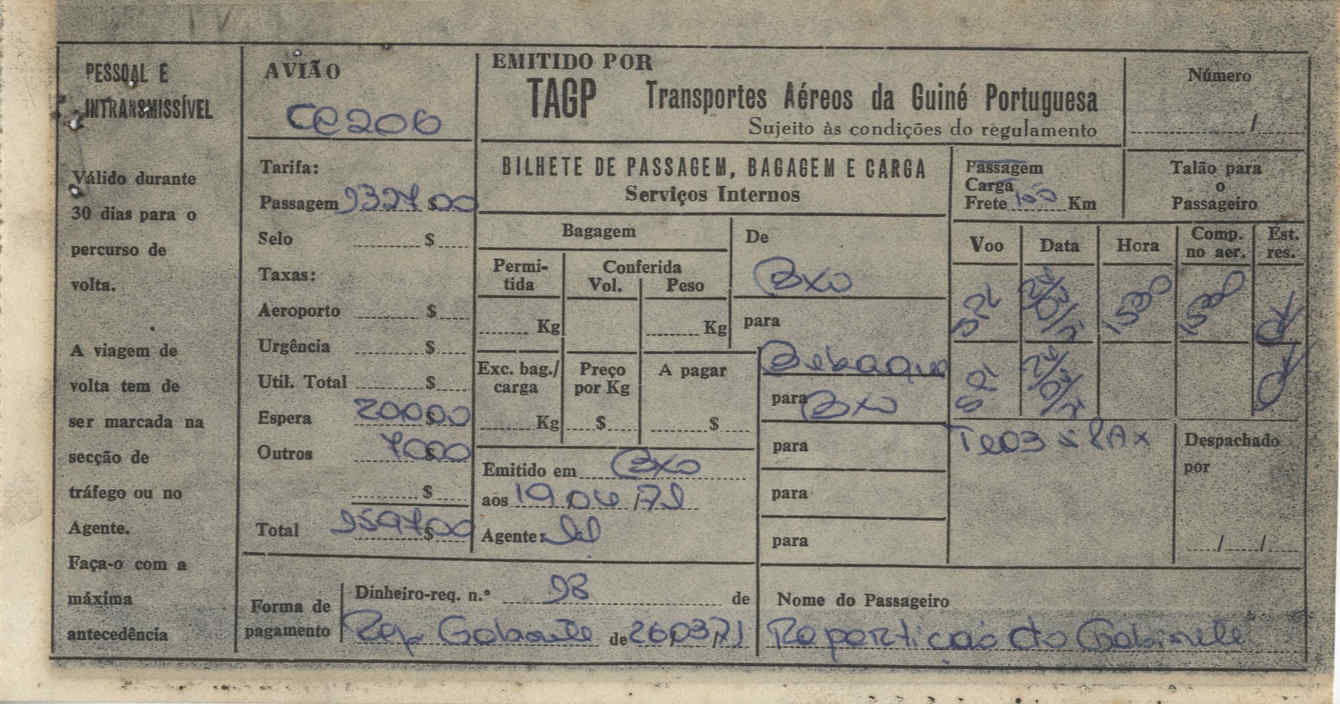 PESSOAL E
INTRANSMISSÍVEL
Válido durante
30 dias para o
percurso de
volta.
A viagem de
volta tem de
ser marcada na
secção de
tráfego ou no
Agente.
Faça-o com a
máxima
antecedência
AVIÃO
CC206
Tarifa:
Passagem $00
Selo $
Taxas:
Aeroporto $
Urgência $
Util. Total $
Espera 200$00
Outros
$
Total $00
Forma de
pagamento
EMITIDO POR
TAGP Transportes Aéreos da Guiné Portuguesa
Sujeito às condições do regulamento
Número
/
BILHETE DE PASSAGEM, BAGAGEM E CARGA
Serviços Internos
Passagem
Carga
Frete 100 Km
Talão para
o
Passageiro
Bagagem
Permi-
tida
Conferida
Vol. Peso
Kg Kg
Exc. bag./
carga
Preço
por Kg
A pagar
Kg $ $
Emitido em BXO
aos 19 04 /71
Agente:
De
BXO
para
Bubaque
para BXO
para
para
para
Voo Data Hora Comp.
no aer. Est.
res.
1500 1500 OK
OK
PAX
Despachado
por
/ /
Dinheiro-req. n.º 98 de
Rep Gabinete de 260371
Nome do Passageiro
Repartição do Gabinete